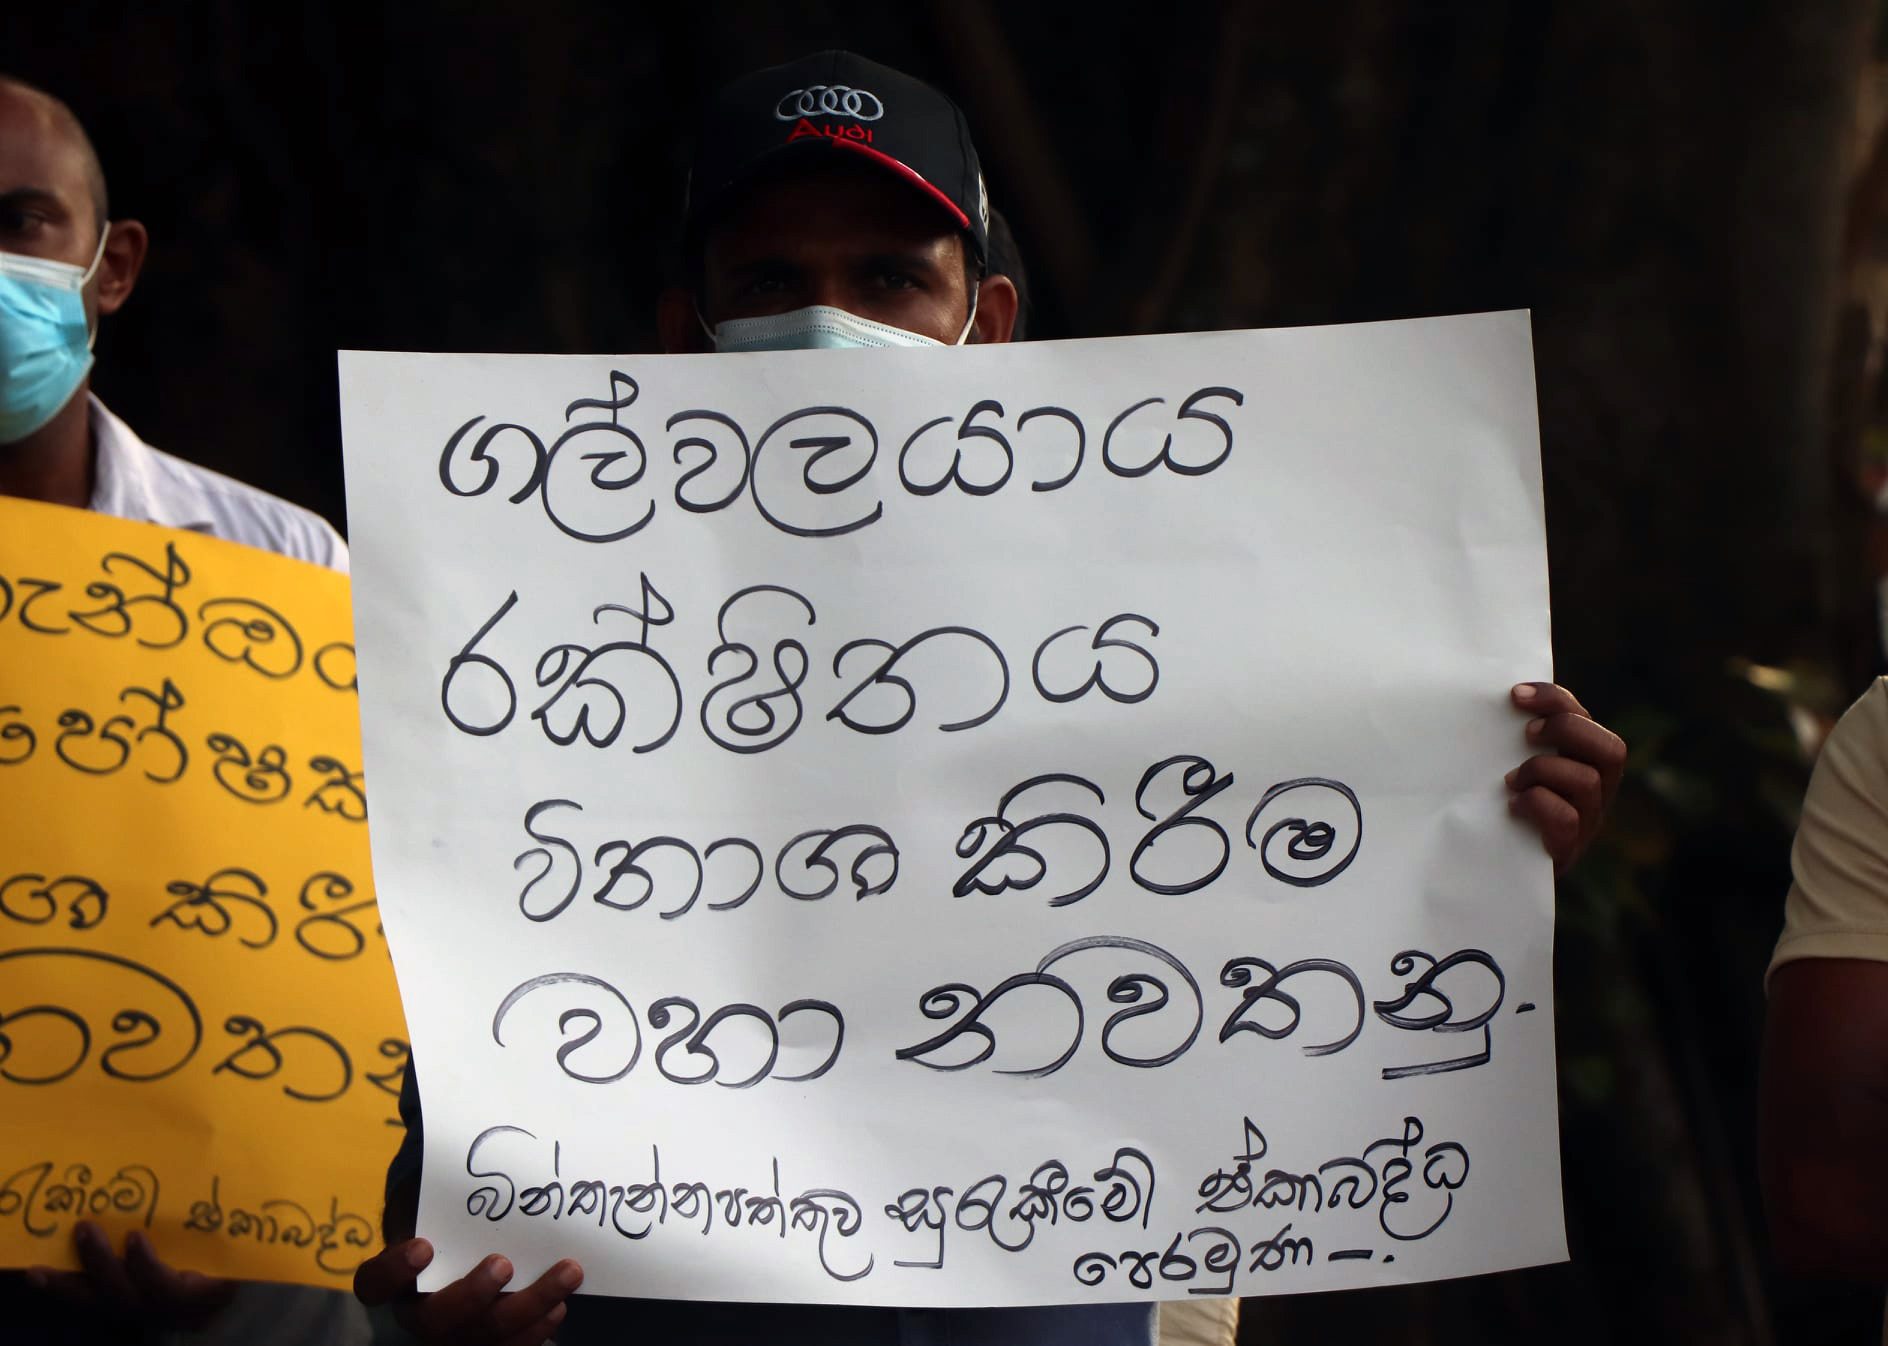 Audi
ගල්වලයාය
රක්ෂිතය
විනාශ කිරීම
වහා නවතනු.
බින්තැන්නපත්තුව සුරැකීමේ ඒකාබද්ධ
පෙරමුණ -.
පෝෂක
ශ කිරී
නවතනු
රැකීමේ ඒකාබද්ධ